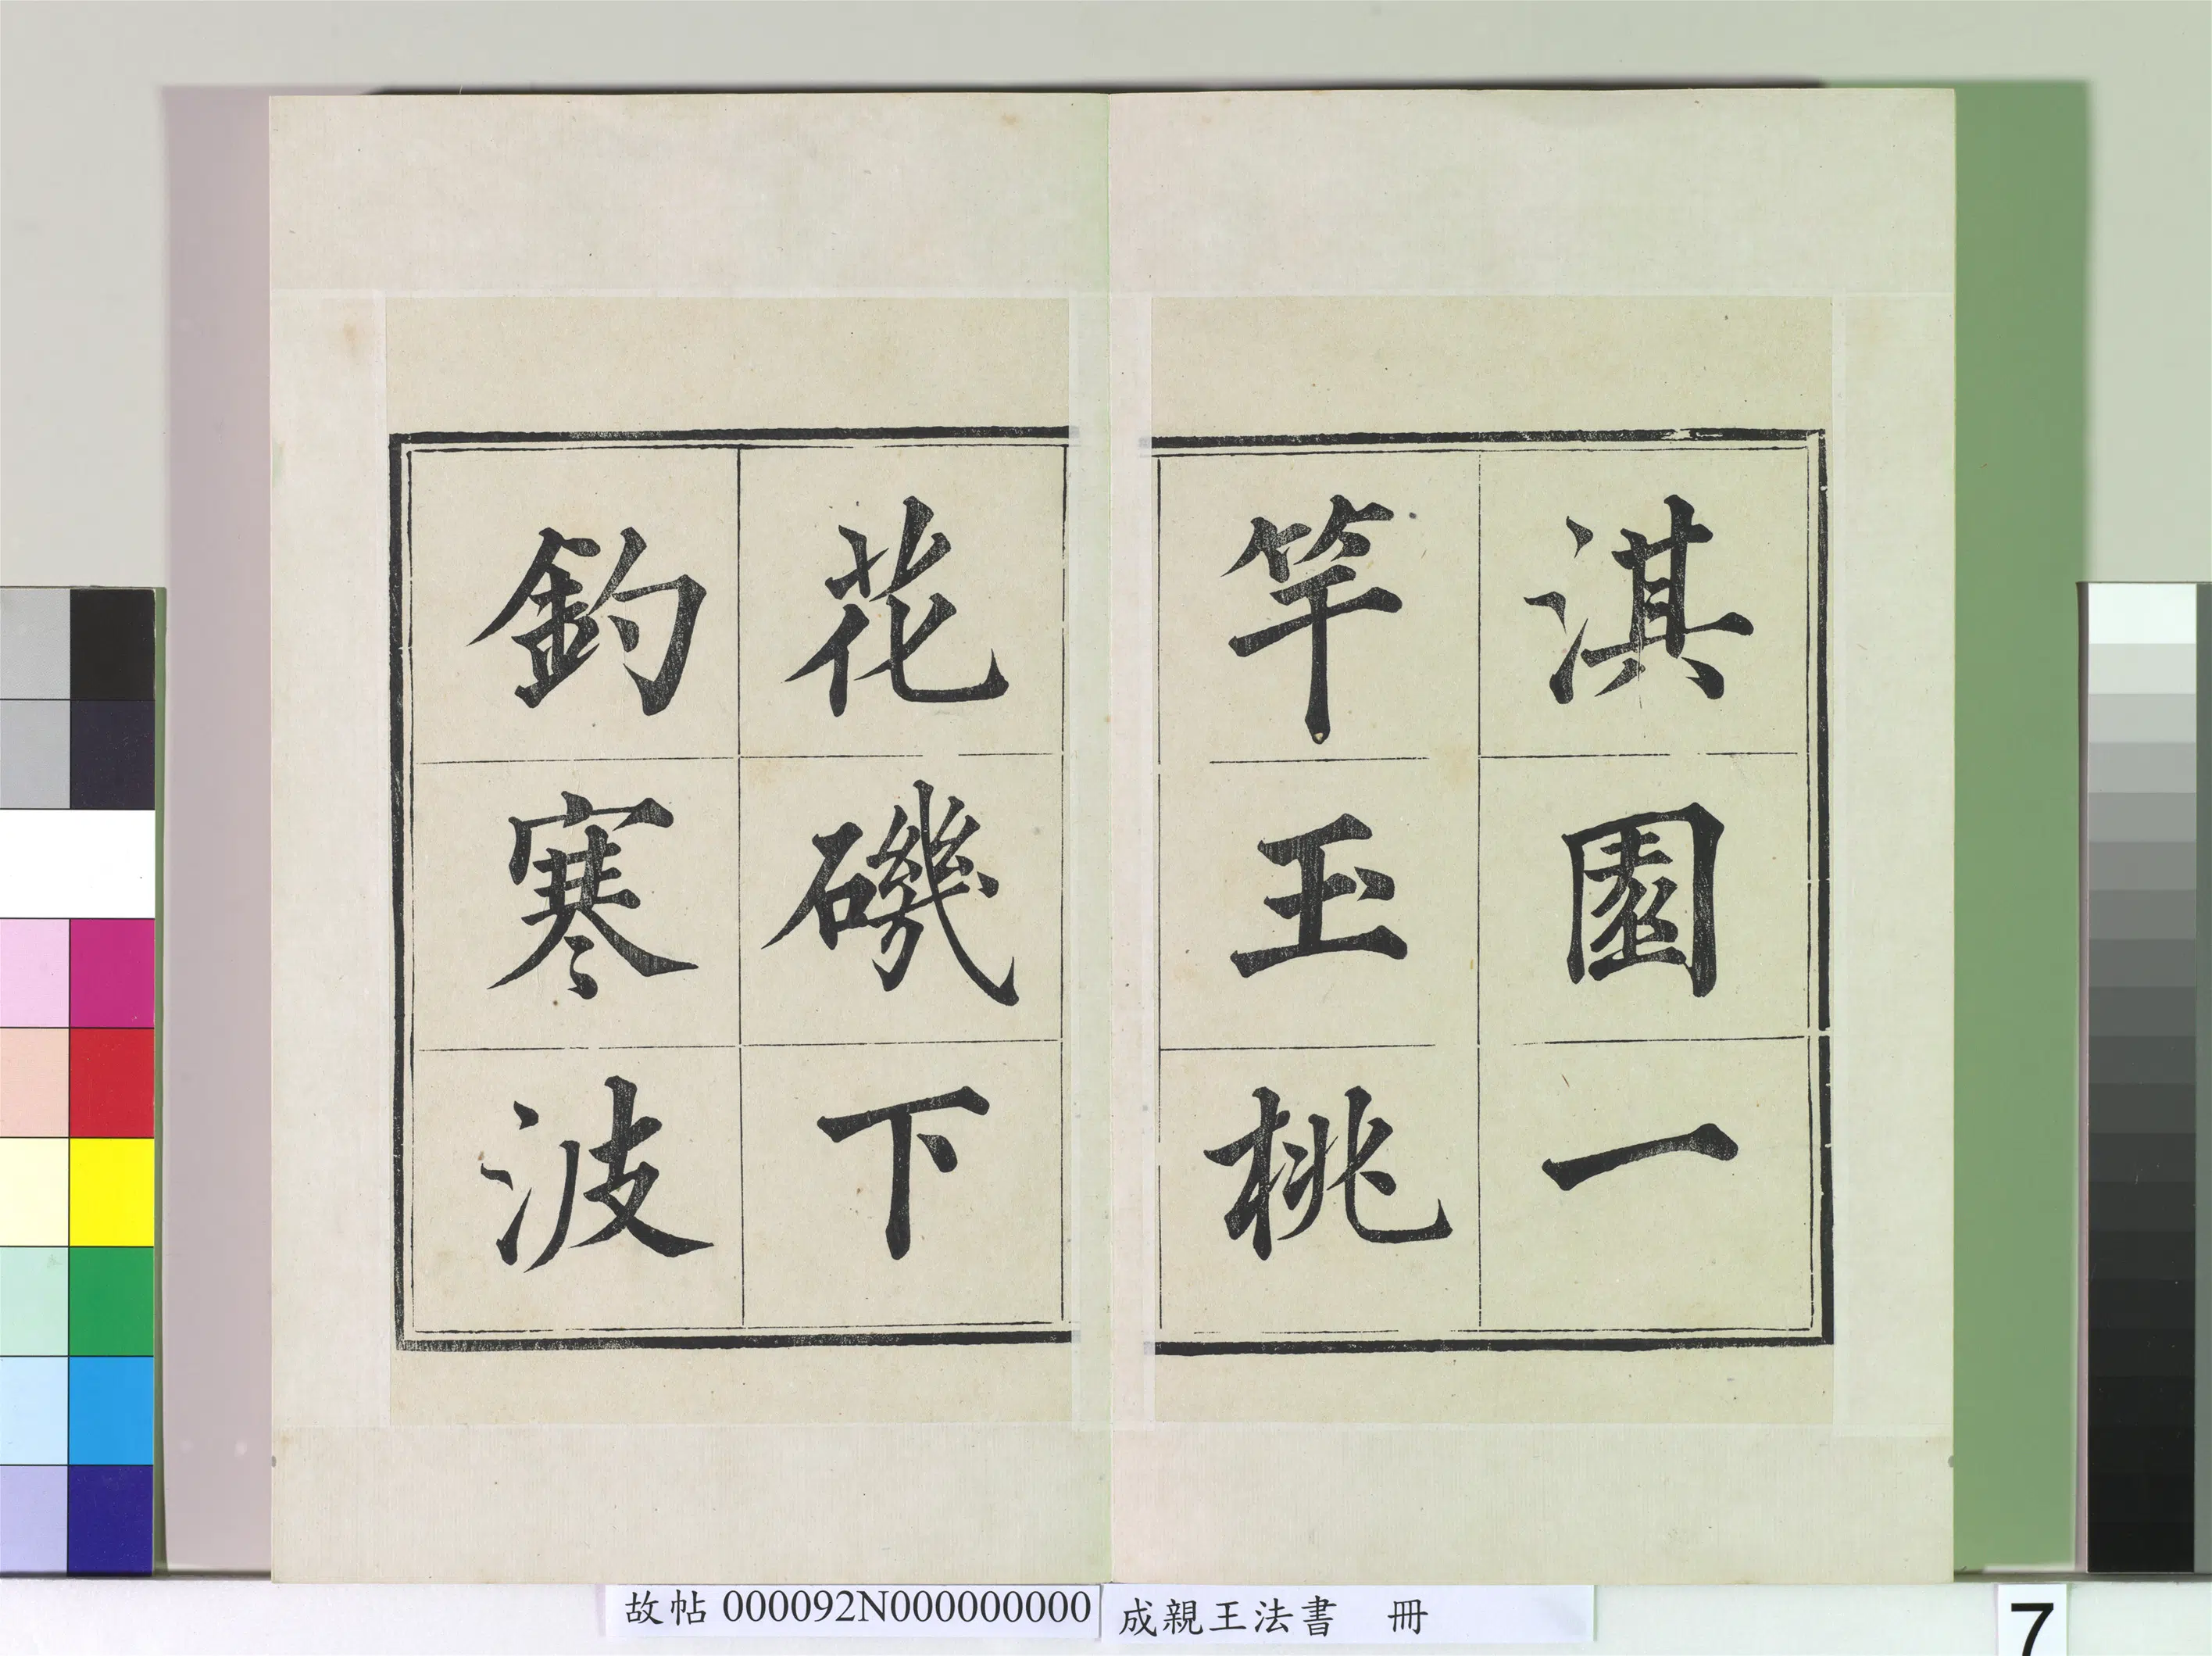 淇園一
竿玉桃
花磯下
釣寒波
故帖 000092N000000000
成親王法書 冊
7